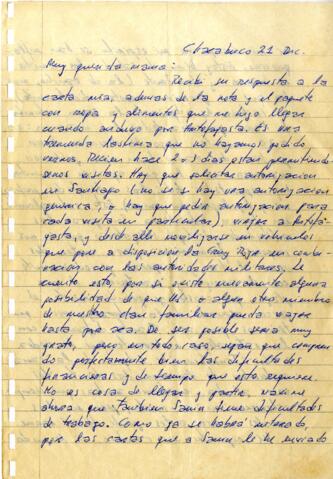 Chacabuco 21 Dic.
Muy querida mamá:
Recibí su respuesta a la
carta mía, además de la nota y el paquete
con ropa y alimentos que me hizo llegar
cuando anduvo por Antofagasta. Es una
tremenda lástima que no hayamos podido
vernos. Recien hace 2 o 3 días están permitiendo
nos visitas. Hay que solicitar autorización
en Santiago (no sé si hay una autorización
genérica, o hay que pedir autorización para
cada visita en particular), viajar a Antofa-
gasta, y desde allí movilizarse en vehículos
que pone a disposición la Cruz Roja en combi-
nación con las autoridades militares. Le
cuento esto, por si existe nuevamente alguna
posibilidad de que Ud. o algun otro miembro
de nuestro clan familiar pueda viajar
hasta por acá. De ser posible sería muy
grato, pero en todo caso, sepan que compren
do perfectamente bien las dificultades
financieras y de tiempo que esto requiere.
No es cosa de llegar y partir, máxime
ahora que también tiene dificultades
de trabajo. Como ya se habrá enterado,
por las cartas que a le he enviado